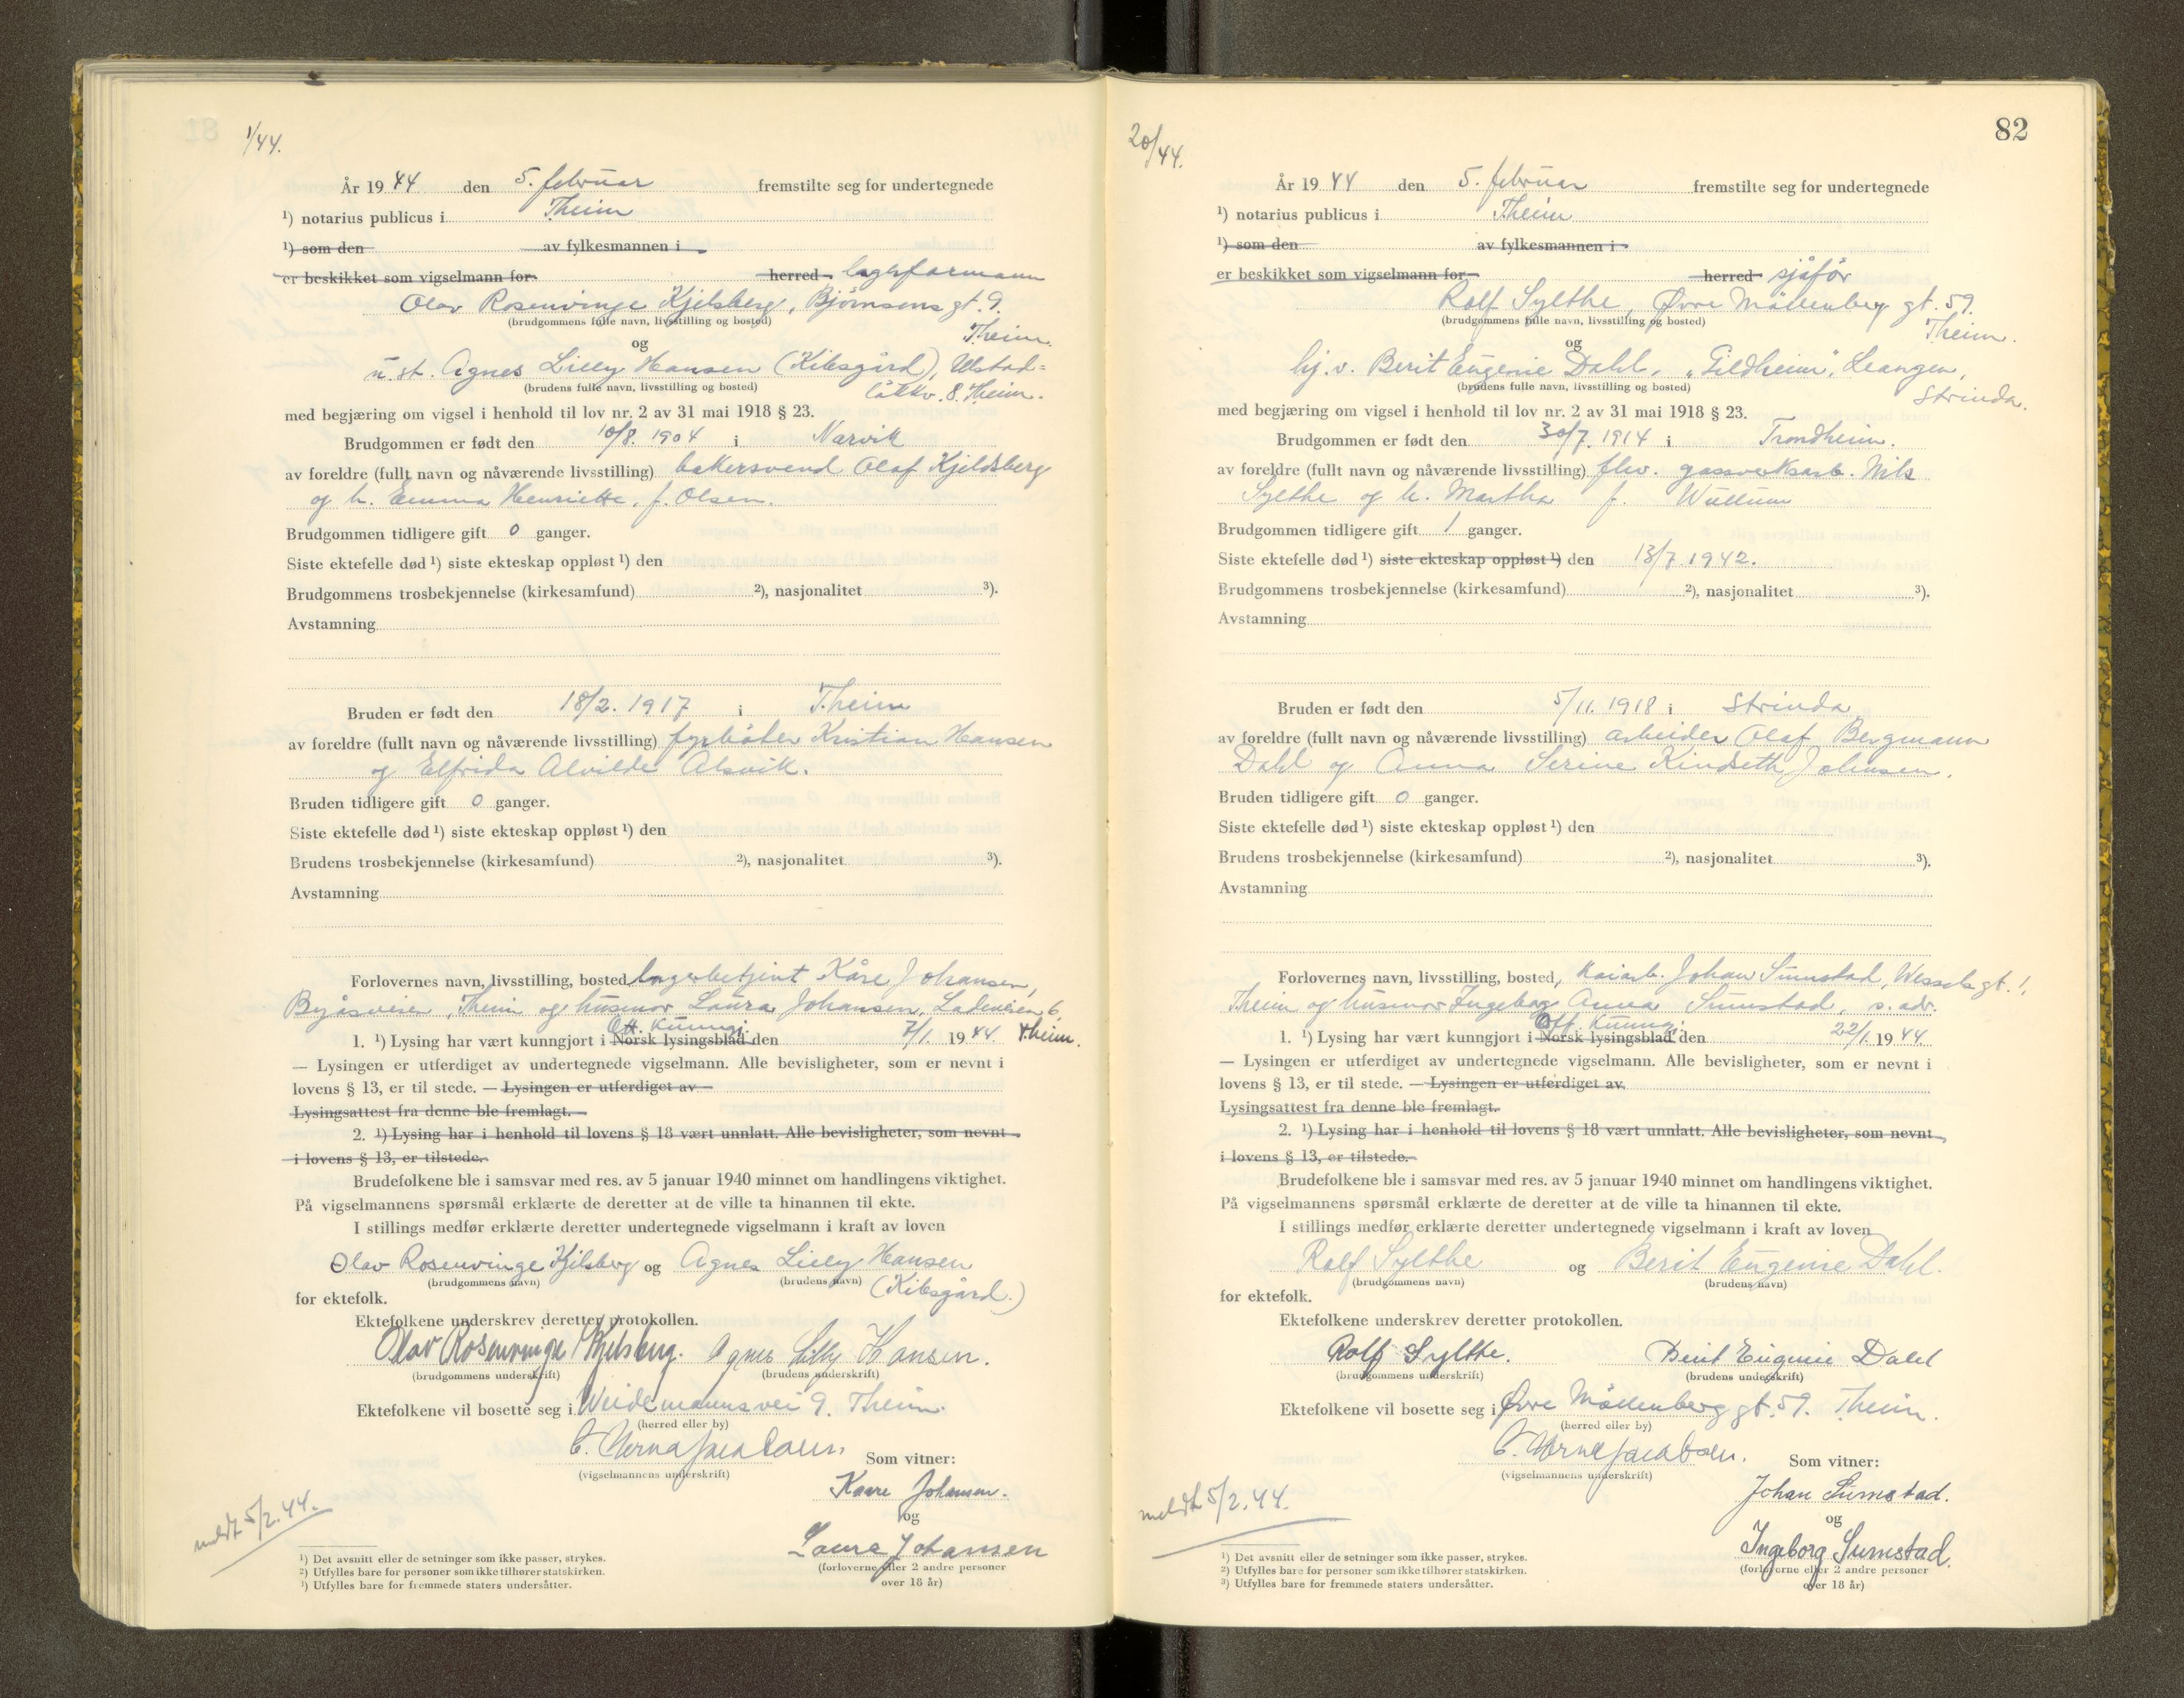 1/44.
År 19 44 den 5. februar fremstilte seg for undertegnede
¹) notarius publicus i T.heim
¹) som den av fylkesmannen i
er beskikket som vigselmann for herred
Olav Rosenvinge Kjelsberg, Björnsens gt. 9.
(brudgommens fulle navn, livsstilling og bosted) T.heim.
og
u. st. Agnes Lilly Hansen (Kibsgård), Ulstad=
(brudens fulle navn, livsstilling og bosted) løkkv. 8. T.heim.
med begjæring om vigsel i henhold til lov nr. 2 av 31 mai 1918 § 23.
Brudgommen er født den 10/8. 1904 i Narvik
av foreldre (fullt navn og nåværende livsstilling) bakersvend Olaf Kjeldsberg
og h. Emma Henriette, f. Olsen.
Brudgommen tidligere gift 0 ganger.
Siste ektefelle død ¹) siste ekteskap oppløst ¹) den
Brudgommens trosbekjennelse (kirkesamfund) ²), nasjonalitet ³).
Avstamning
Bruden er født den 18/2. 1917 i T.heim
av foreldre (fullt navn og nåværende livsstilling) fyrbøter Kristian Hansen
og Elfrida Alvilde Alsvik.
Bruden tidligere gift 0 ganger.
Siste ektefelle død ¹) siste ekteskap oppløst ¹) den
Brudens trosbekjennelse (kirkesamfund) ²), nasjonalitet ³).
Avstamning
Forlovernes navn, livsstilling, bosted lagerbetjent Kåre Johansen,
Byåsveien, T.heim og husmor Laura Johansen, Ladeveien 6,
Off. Kunngj.
1. ¹) Lysing har vært kunngjort i Norsk lysingsblad den 7/1. 19 44. T.heim.
— Lysingen er utferdiget av undertegnede vigselmann. Alle bevisligheter, som er nevnt i
lovens § 13, er til stede. — Lysingen er utferdiget av
Lysingsattest fra denne ble fremlagt.
2. ¹) Lysing har i henhold til lovens § 18 vært unnlatt. Alle bevisligheter, som nevnt
i lovens § 13, er tilstede.
Brudefolkene ble i samsvar med res. av 5 januar 1940 minnet om handlingens viktighet.
På vigselmannens spørsmål erklærte de deretter at de ville ta hinannen til ekte.
I stillings medfør erklærte deretter undertegnede vigselmann i kraft av loven
Olav Rosenvinge Kjelsberg og Agnes Lilly Hansen
(brudgommens navn) (brudens navn) (Kibsgård.)
for ektefolk.
Ektefolkene underskrev deretter protokollen.
Olav Rosenvinge Kjelsberg. Agnes Lilly Hansen.
(brudgommens underskrift) (brudens underskrift)
Ektefolkene vil bosette seg i Weidemannsvei 9. T.heim.
(herred eller by)
(vigselmannens underskrift) Som vitner:
Kaare Johansen.
og
Laura Johansen
(forloverne eller 2 andre personer
over 18 år)
meldt 5/2. 44.
¹) Det avsnitt eller de setninger som ikke passer, strykes.
²) Utfylles bare for personer som ikke tilhører statskirken.
³) Utfylles bare for fremmede staters undersåtter.
82
20/44.
År 19 44 den 5. februar fremstilte seg for undertegnede
¹) notarius publicus i T.heim
¹) som den av fylkesmannen i
er beskikket som vigselmann for herred sjåfør
Rolf Sylthe, Øvre Möllenberg gt. 59.
(brudgommens fulle navn, livsstilling og bosted) T.heim.
og
hj. v. Berit Eugenie Dahl, "Gildheim", Leangen,
(brudens fulle navn, livsstilling og bosted) Strinda.
med begjæring om vigsel i henhold til lov nr. 2 av 31 mai 1918 § 23.
Brudgommen er født den 30/7. 1914 i Trondheim.
av foreldre (fullt navn og nåværende livsstilling) flv. gassverksarb. Nils
Sylthe og h. Martha f. Wullum
Brudgommen tidligere gift 1 ganger.
Siste ektefelle død ¹) siste ekteskap oppløst ¹) den 13/7 1942.
Brudgommens trosbekjennelse (kirkesamfund) ²), nasjonalitet ³).
Avstamning
Bruden er født den 5/11. 1918 i Strinda
av foreldre (fullt navn og nåværende livsstilling) arbeider Olaf Bergmann
Dahl og Anna Serine Kindseth Johnsen.
Bruden tidligere gift 0 ganger.
Siste ektefelle død ¹) siste ekteskap oppløst ¹) den
Brudens trosbekjennelse (kirkesamfund) ²), nasjonalitet ³).
Avstamning
Forlovernes navn, livsstilling, bosted, kaiarb. Johan Sumstad, Wesselsgt. 1,
T.heim og husmor Ingeborg Anna Sumstad, s. adr.
Off. Kunngj.
1. ¹) Lysing har vært kunngjort i Norsk lysingsblad den 22/1. 19 44.
— Lysingen er utferdiget av undertegnede vigselmann. Alle bevisligheter, som er nevnt i
lovens § 13, er til stede. — Lysingen er utferdiget av
Lysingsattest fra denne ble fremlagt.
2. ¹) Lysing har i henhold til lovens § 18 vært unnlatt. Alle bevisligheter, som nevnt
i lovens § 13, er tilstede.
Brudefolkene ble i samsvar med res. av 5 januar 1940 minnet om handlingens viktighet.
På vigselmannens spørsmål erklærte de deretter at de ville ta hinannen til ekte.
I stillings medfør erklærte deretter undertegnede vigselmann i kraft av loven
Rolf Sylthe og Berit Eugenie Dahl.
(brudgommens navn) (brudens navn)
for ektefolk.
Ektefolkene underskrev deretter protokollen.
Rolf Sylthe. Berit Eugenie Dahl
(brudgommens underskrift) (brudens underskrift)
Ektefolkene vil bosette seg i Øvre Möllenberg gt. 59. T.heim.
(herred eller by)
(vigselmannens underskrift) Som vitner:
Johan Sumstad.
og
Ingeborg Sumstad.
(forloverne eller 2 andre personer
over 18 år)
meldt 5/2. 44.
¹) Det avsnitt eller de setninger som ikke passer, strykes.
²) Utfylles bare for personer som ikke tilhører statskirken.
³) Utfylles bare for fremmede staters undersåtter.